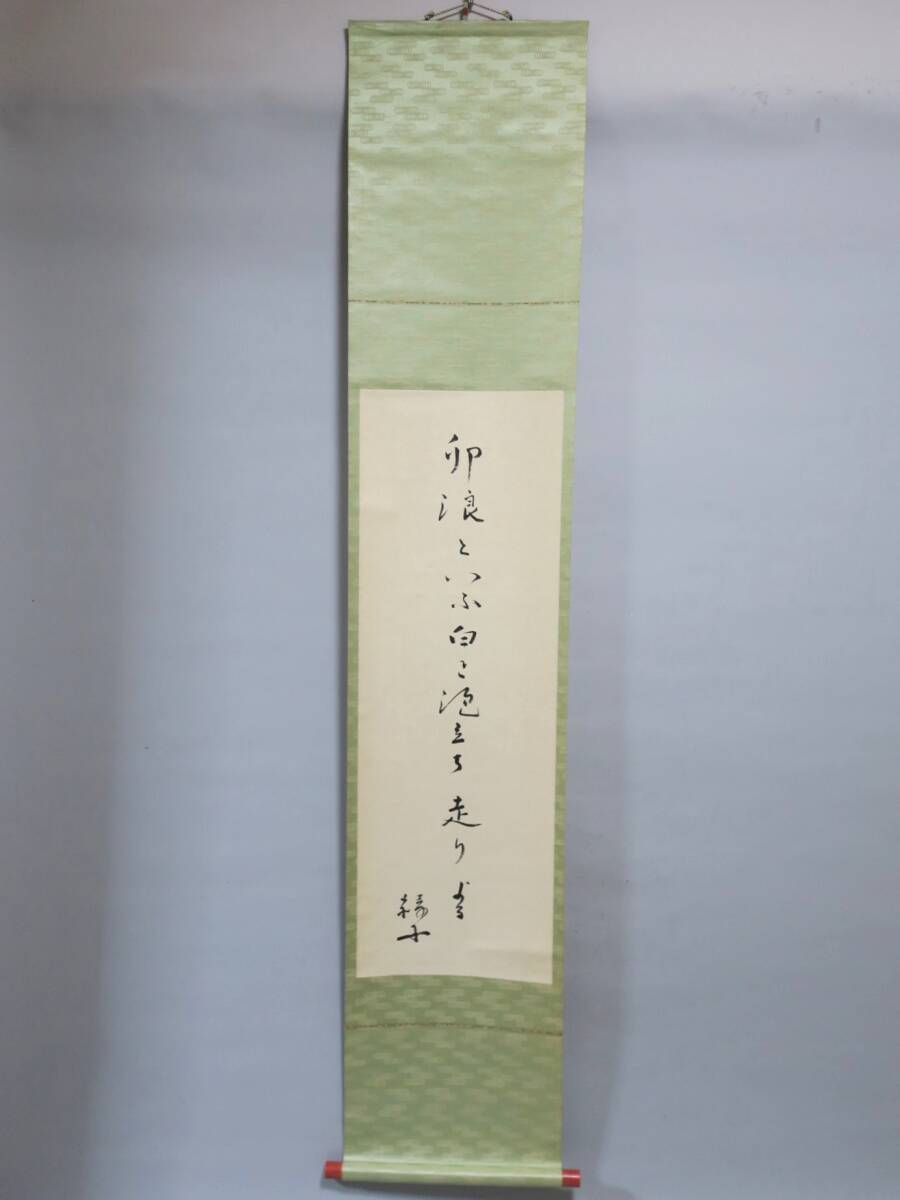 卯浪といふ白き泡立ち走り寄る
梧子